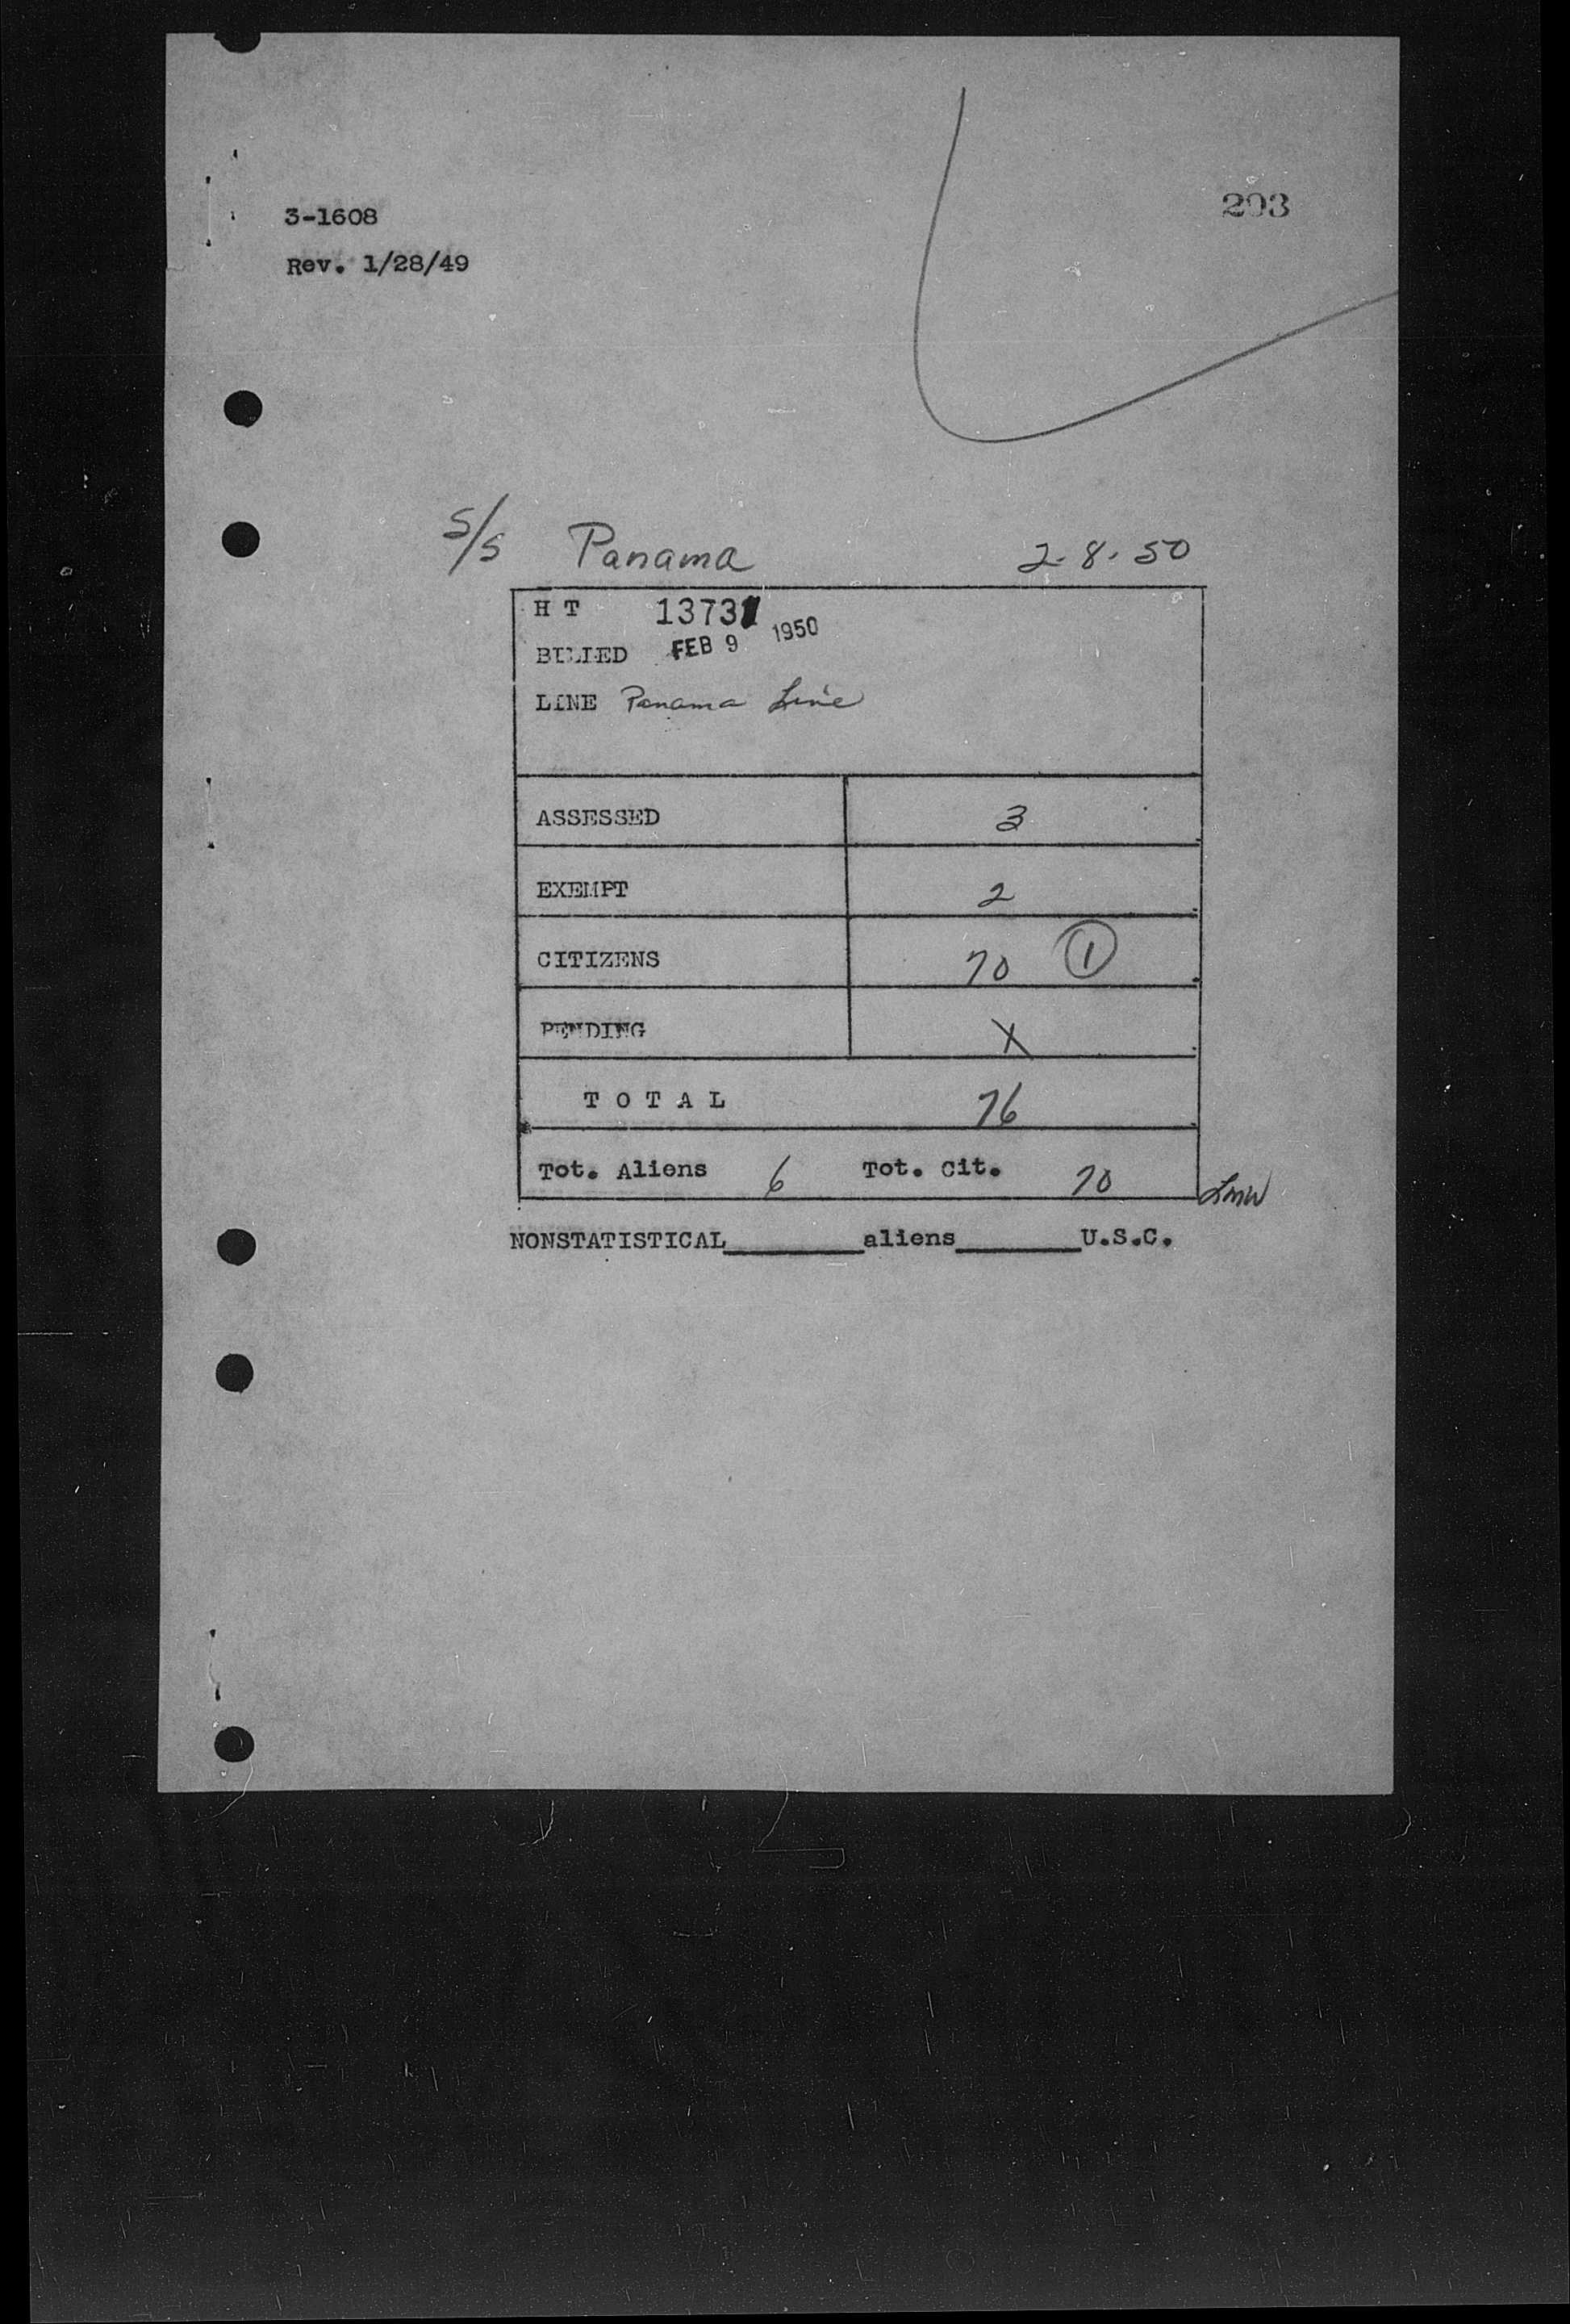 3-1608
203
Rev. 1/28/49
S/S Panama 2-8-50
H T 13731
BILLED FEB 9 1950
LINE Panama Line
ASSESSED 3
EXEMPT 2
CITIZENS 70 1
PENDING X
T O T A L 76
Tot. Aliens 6 Tot. Cit. 70
LMW
NONSTATISTICAL________aliens_______U.S.C.